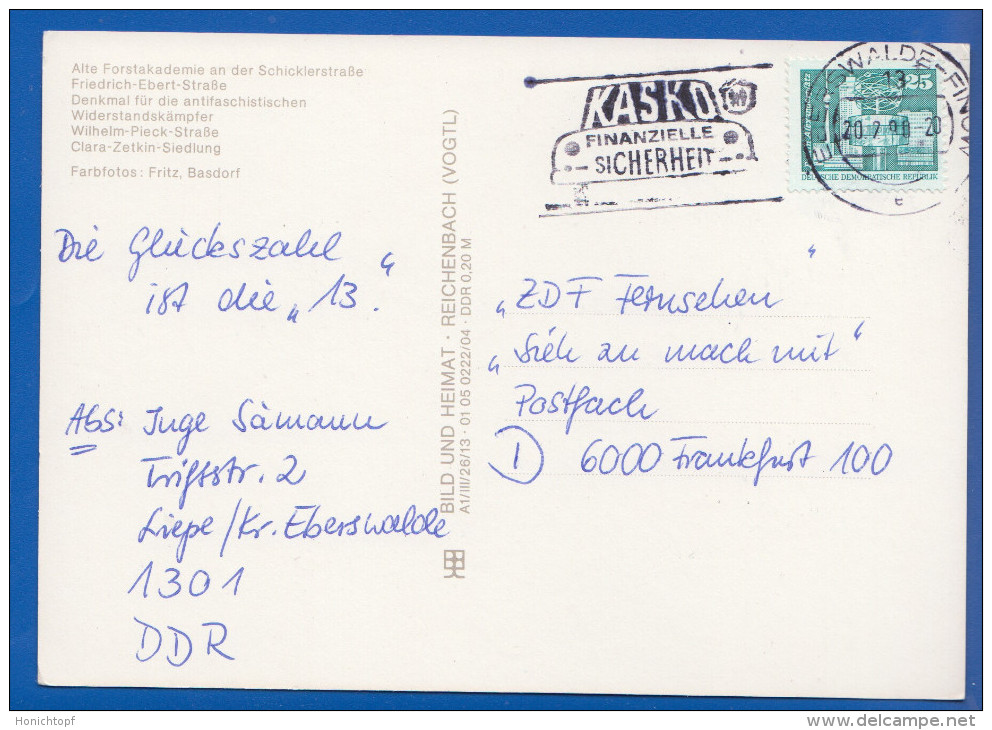 Alte Forstakademie an der Schicklerstraße
Friedrich-Ebert-Straße
Denkmal für die antifaschistischen
Widerstandskämpfer
Wilhelm-Pieck-Straße
Clara-Zetkin-Siedlung
Farbfotos: Fritz, Basdorf
KASKO
FINANZIELLE
SICHERHEIT
EBERSWALDE-FINOW
13
20.2.90-20
e
25
DEUTSCHE DEMOKRATISCHE REPUBLIK
Die Glückszahl
ist die „13.“
Abs: Inge Sämann
Triftstr. 2
Liepe/Kr. Eberswalde
1301
DDR
BILD UND HEIMAT · REICHENBACH (VOGTL)
A1/III/26/13 · 01 05 0222/04 · DDR 0,20 M
„ZDF Fernsehen “
„Sieh zu mach mit“
Postfach
D 6000 Frankfurt 100
Honichtopf
www.delcampe.net